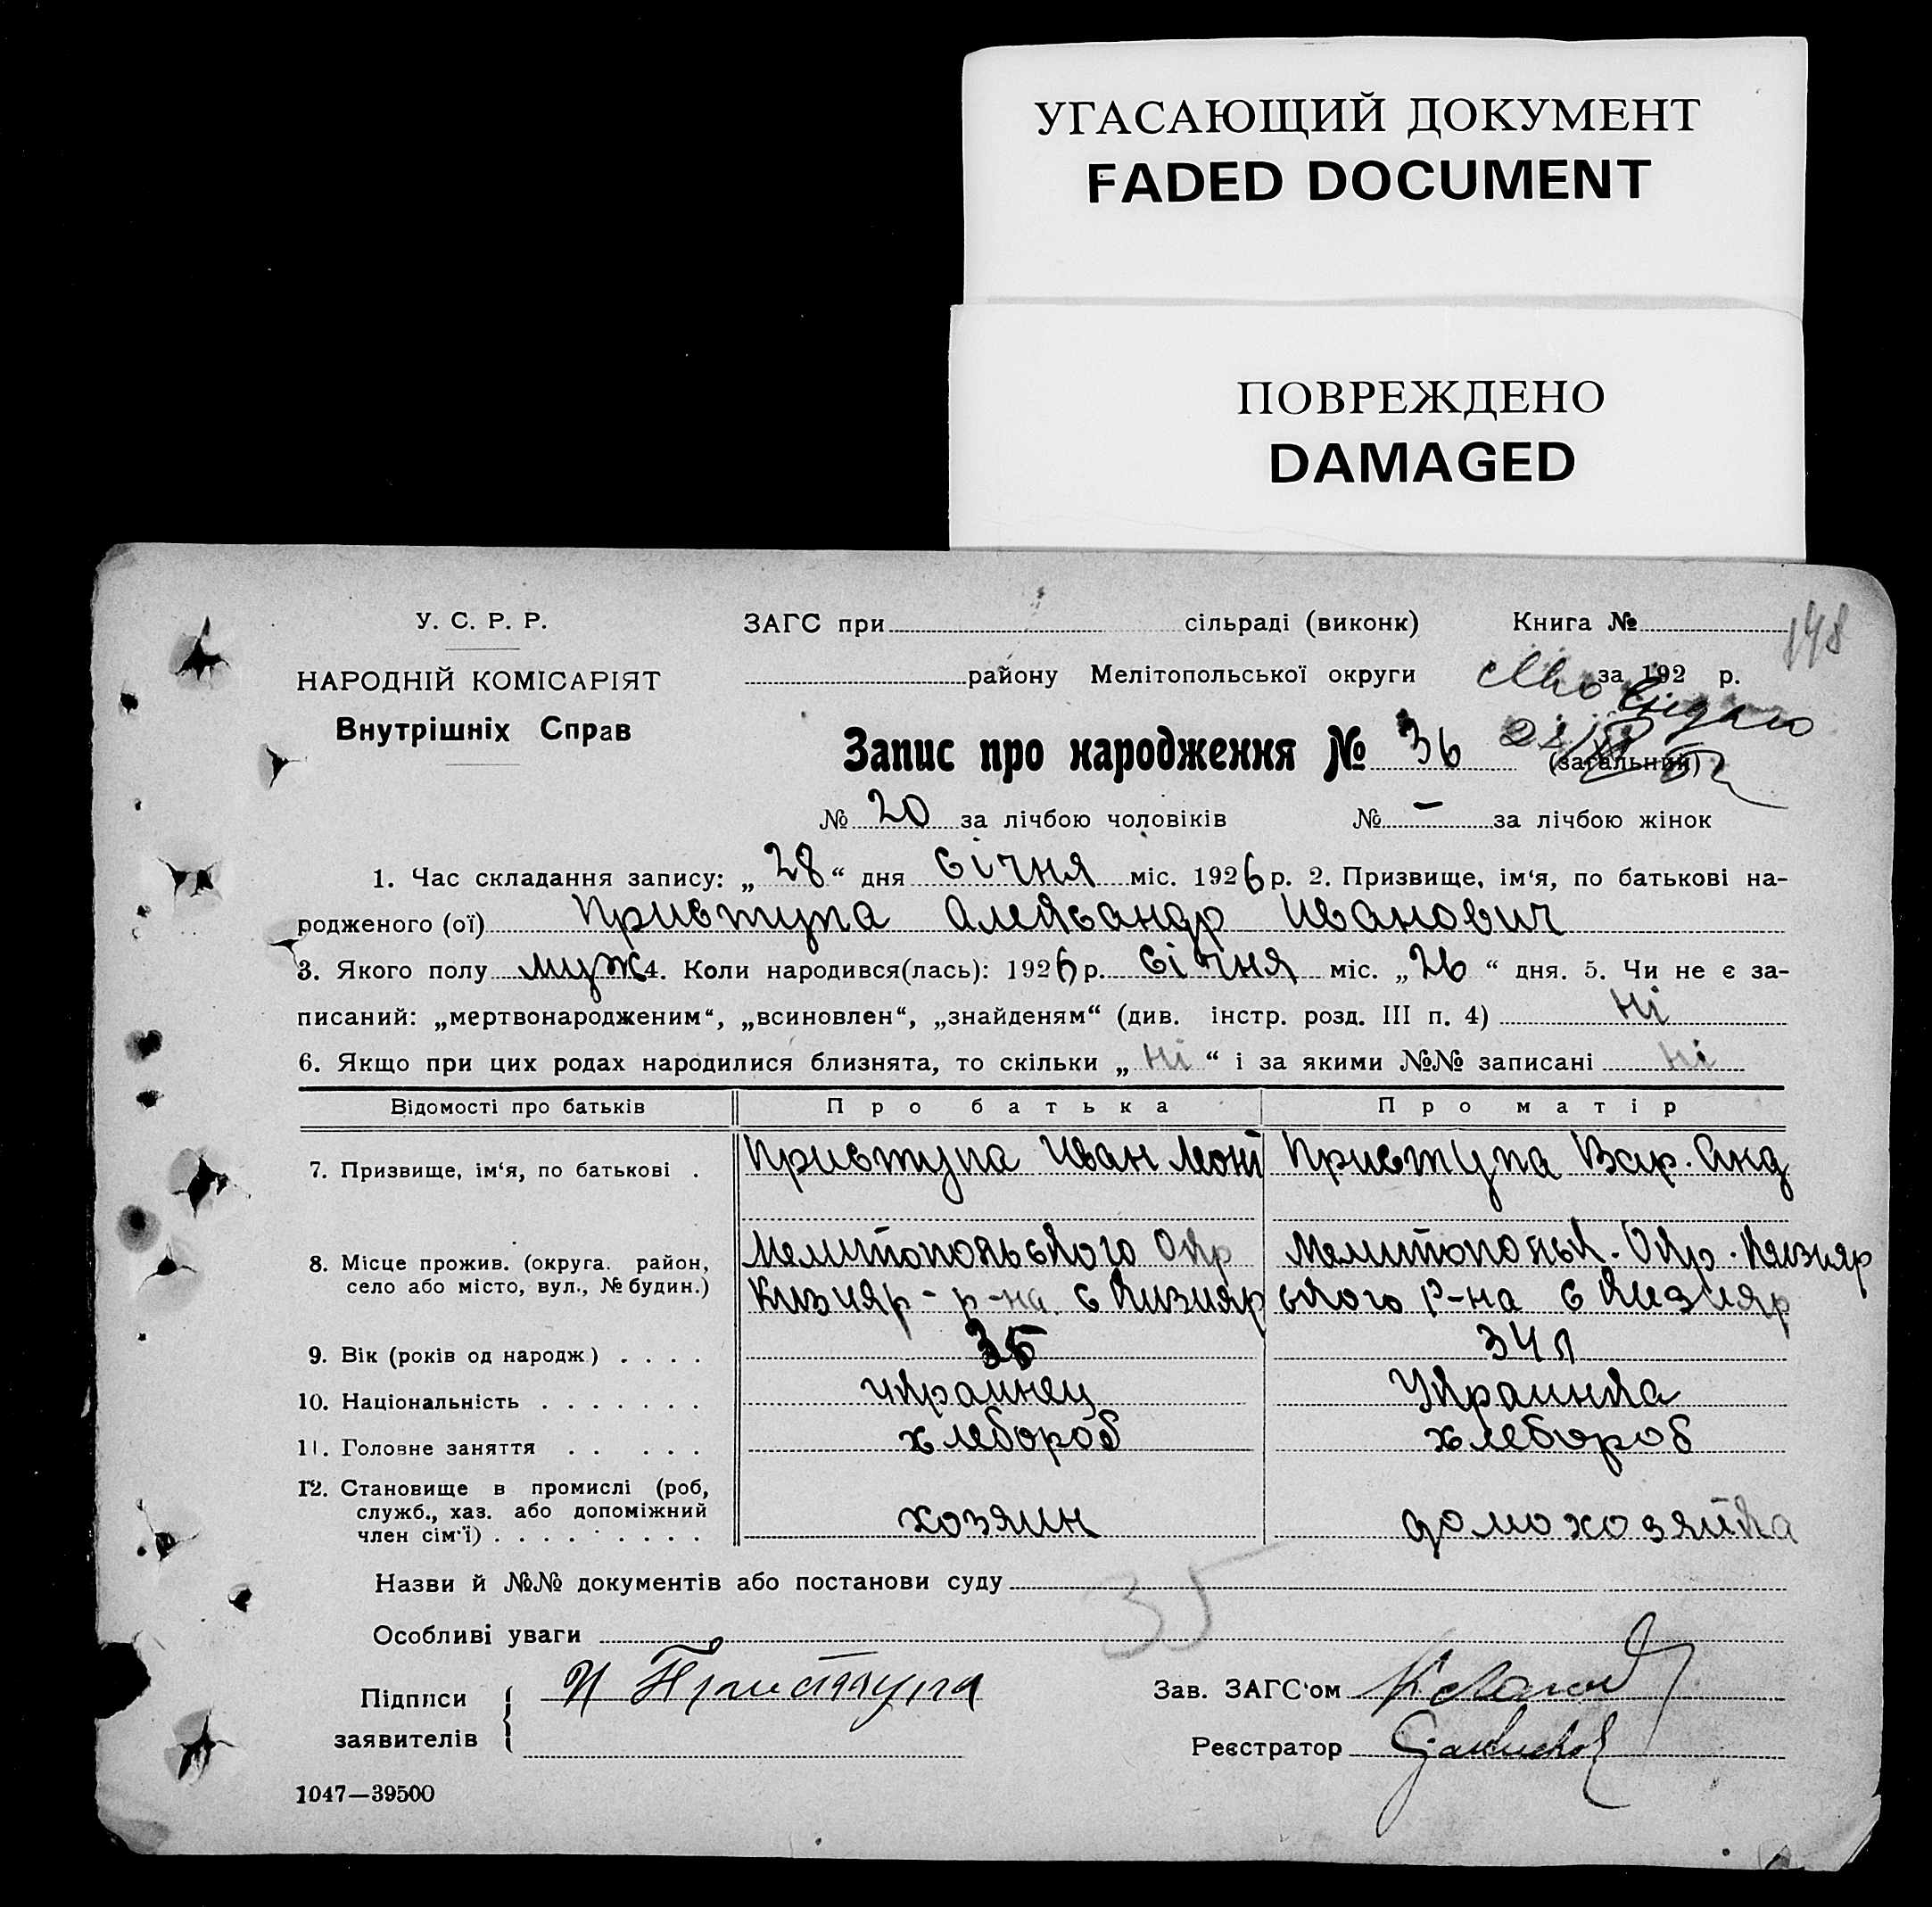 УГАСАЮЩИЙ ДОКУМЕНТ
FADED DOCUMENT
ПОВРЕЖДЕНО
DAMAGED
У. С. Р. Р.
НАРОДНІЙ КОМІСАРІЯТ
Внутрішніх Справ
ЗАГС при сільраді (виконк) Книга №
148
району Мелітопольської округи за 192 р.
Запис про народження № 36 (загальний)
№ 20 за лічбою чоловіків № – за лічбою жінок
1. Час складання запису: „28“ дня січня міс. 1926 р. 2. Призвище, ім‘я, по батькові на-
родженого (ої) Приступа Александр Иванович
3. Якого полу муж 4. Коли народився(лась): 1926 р. січня міс. „26“ дня. 5. Чи не є за-
писаний: „мертвонародженим“, „всиновлен“, „знайденям“ (див. інстр. розд. III п. 4) Ні
6. Якщо при цих родах народилися близнята, то скільки „Ні“ і за якими №№ записані Ні
Відомості про батьків Про батька Про матір
7. Призвище, ім‘я, по батькові . Приступа Иван Приступа Вар. Анд
8. Місце прожив. (округа. район, Мелитопольского Окр Мелитопольк. Окр. Кизияр
село або місто, вул., № будин.) Кизияр - р-на. с Кизияр ского Р-на с Кизияр
9. Вік (років од народж) . . . . 35 34 л
10. Національність . . . . . . . украинец Украинка
11. Головне заняття . . . . . хлебороб хлебороб
12. Становище в промислі (роб,
служб., хаз. або допоміжний
член сім‘ї) . . . . . . . . . хозяин домохозяйка
Назви й №№ документів або постанови суду
35
Особливі уваги
Підписи
заявителів
И Приступа
Зав. ЗАГС‘ом
Реєстратор
1047—39500